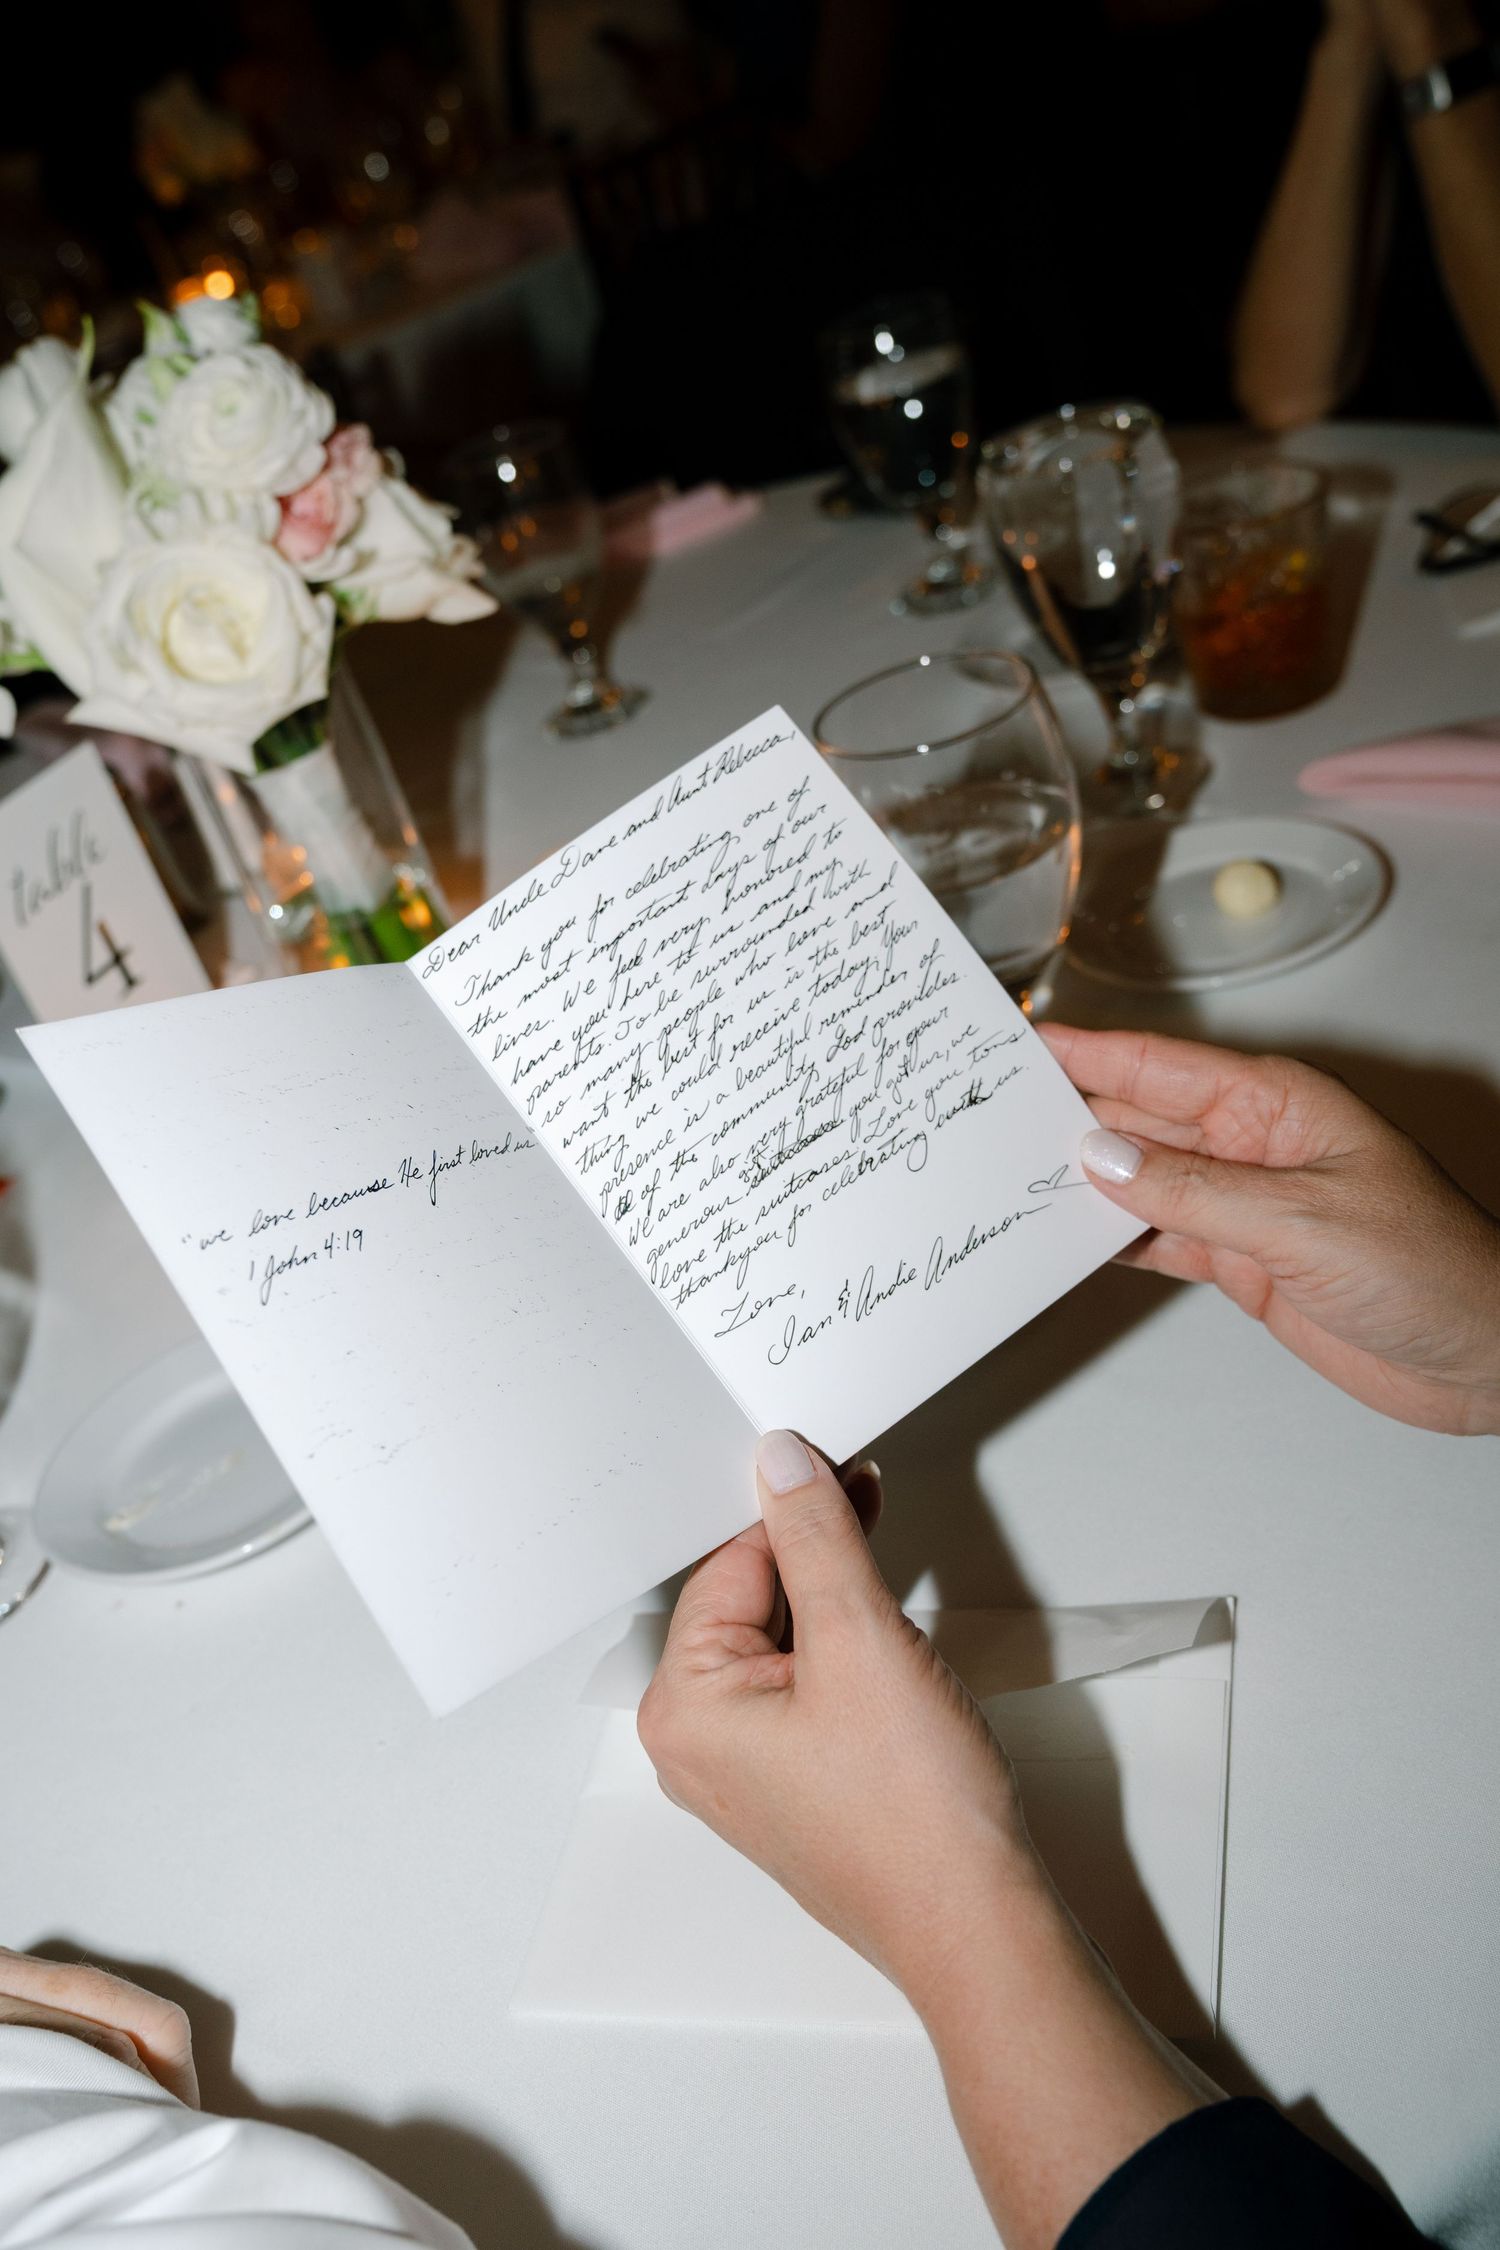 table
4
"we love because He first loved us"
1 John 4:19
Dear Uncle Dave and Aunt Rebecca,
Thank you for celebrating one of
the most important days of our
lives. We feel very honored to
have you here to us and my
parents. To be surrounded with
so many people who love and
want the best for us is the best
thing we could receive today. Your
presence is a beautiful reminder of
of the community God provides.
We are also very grateful for your
generous gift you got us, we
love the suitcases! Love you tons
thankyou for celebrating with us.
Love,
Ian & Andie Anderson